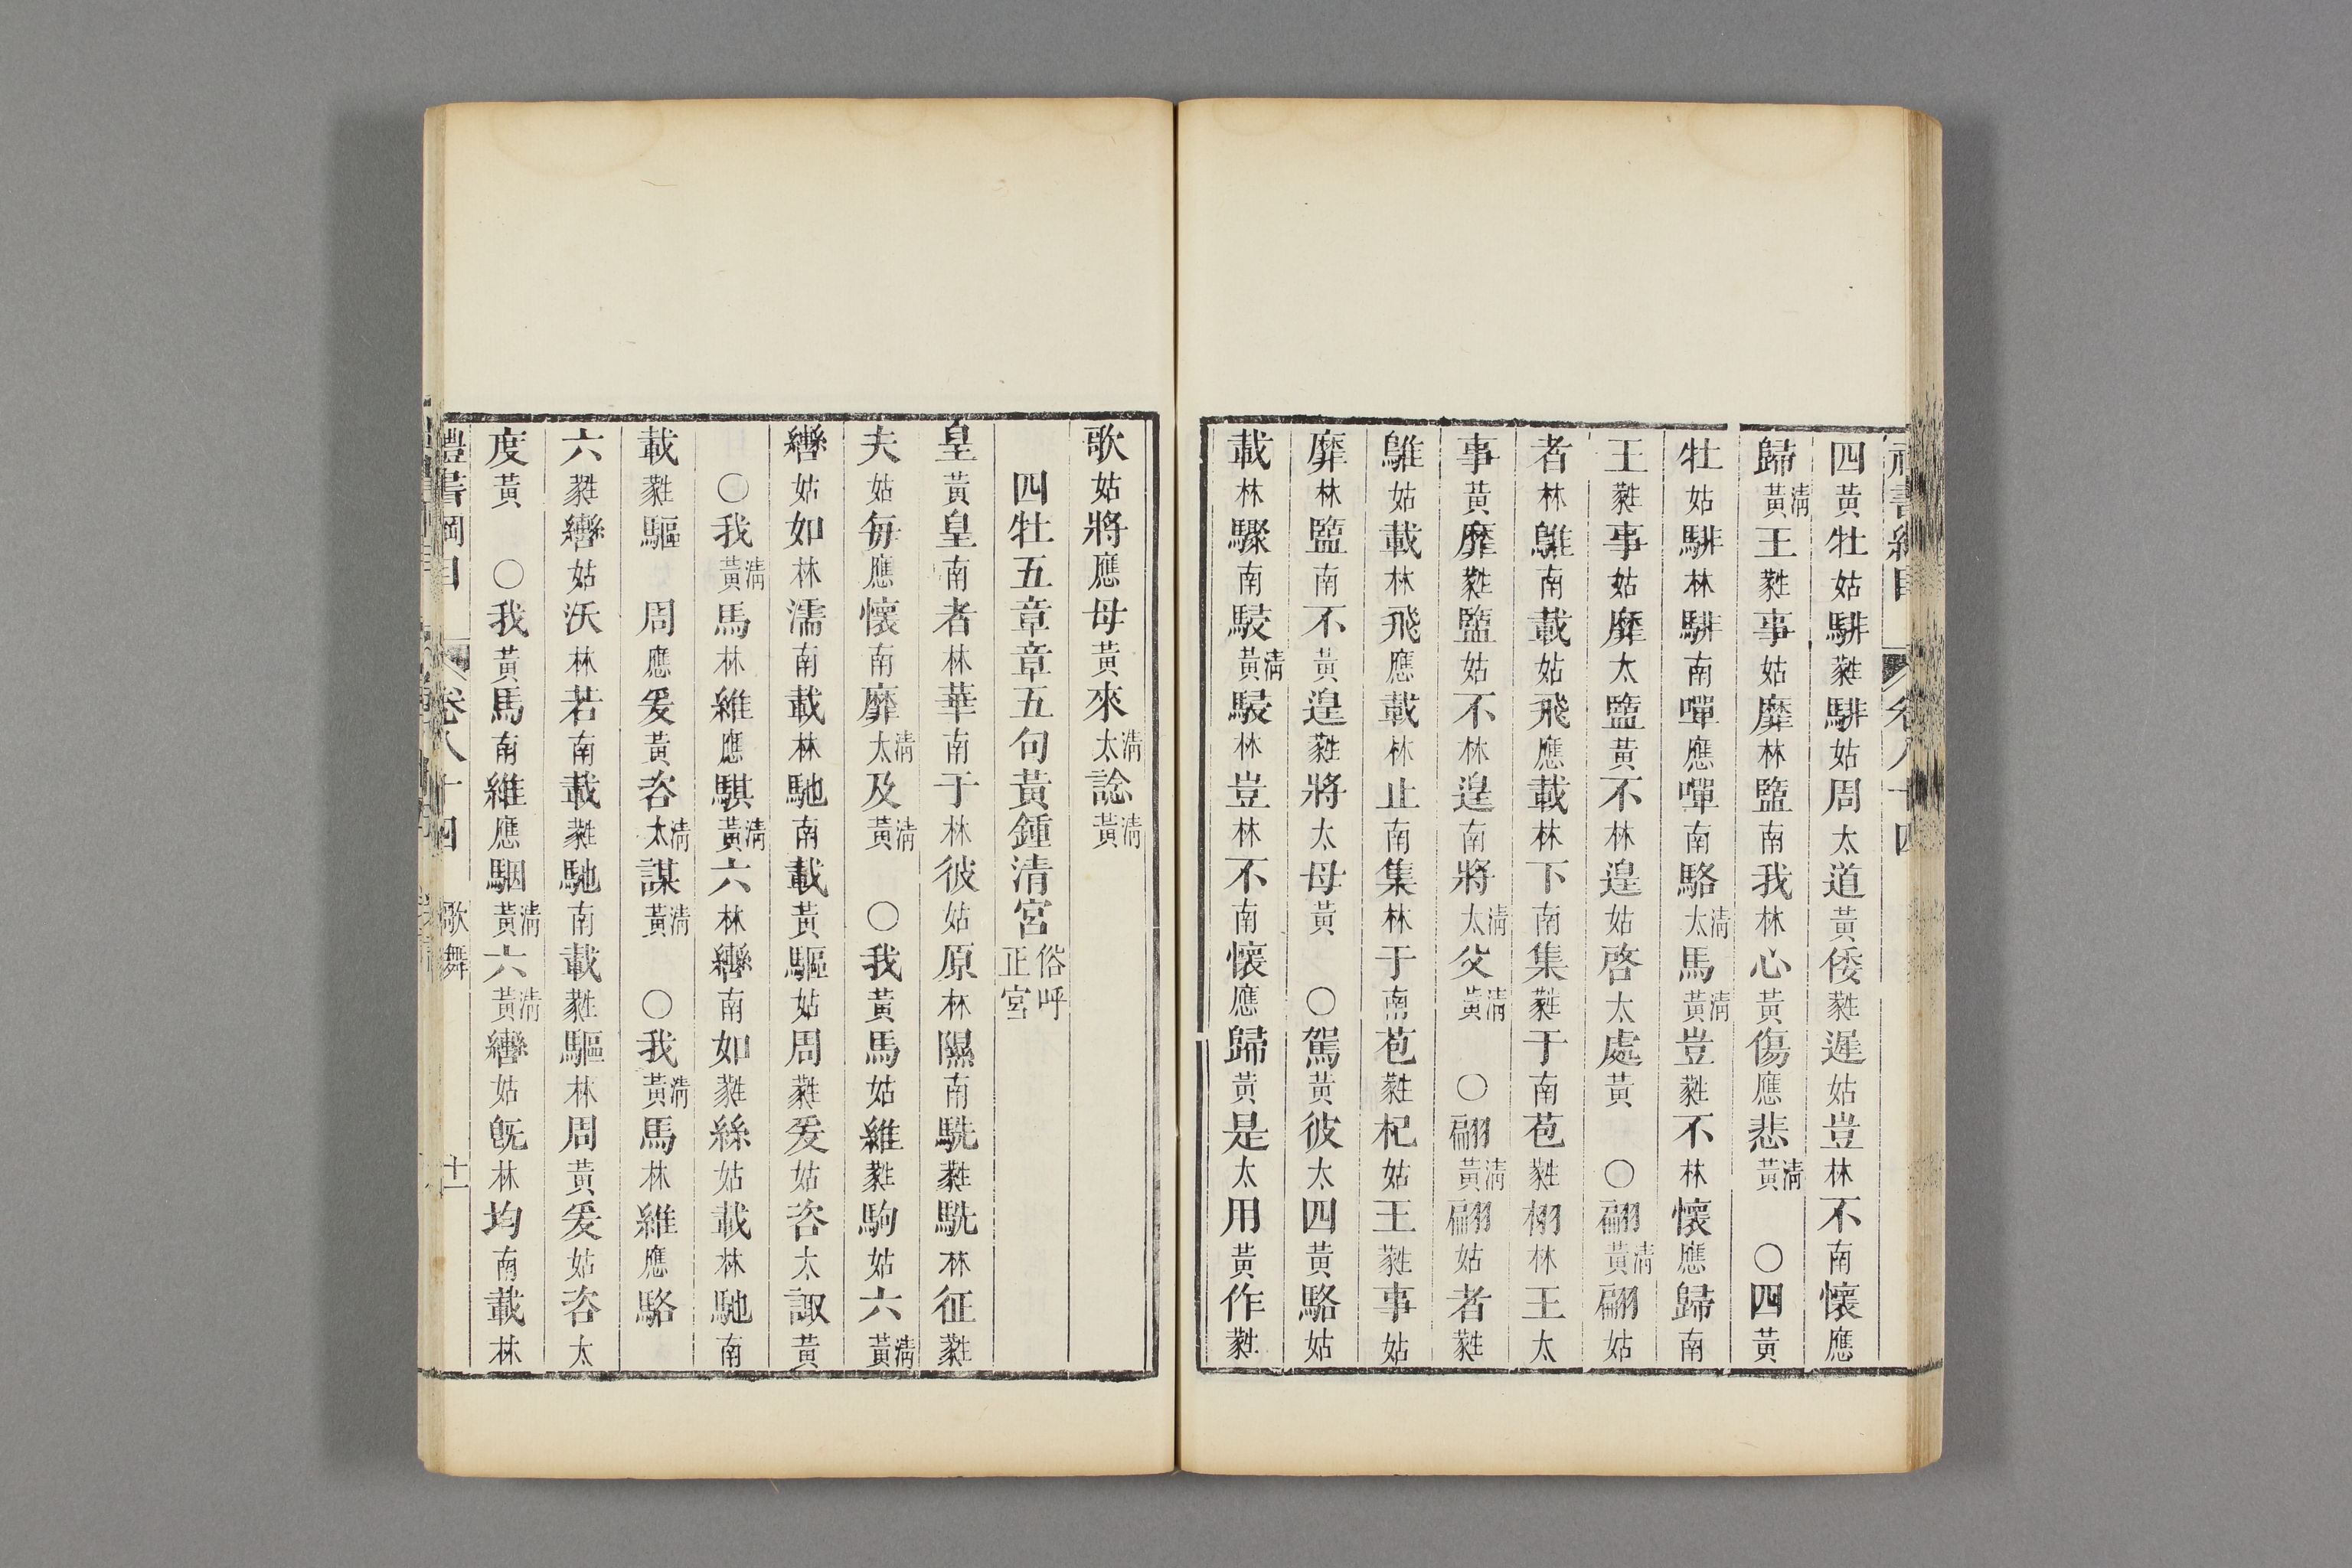 四黃牡姑騑蕤騑姑周太道黃倭蕤遲姑豈林不南懷應
歸清黃王蕤事姑靡林盬南我林心黃傷應悲清黃〇四黃
牡姑騑林騑南嘽應嘽南駱清太馬清黃豈蕤不林懷應歸南
王蕤事姑靡太盬黃不林遑姑啓太處黃〇翩清黃翩姑
者林鵻南載姑飛應載林下南集蕤于南苞蕤栩林王太
事黃靡蕤盬姑不林遑南將清太父清黃〇翩清黃翩姑者蕤
鵻姑載林飛應載林止南集林于南苞蕤杞姑王蕤事姑
靡林盬南不黃遑蕤將太母黃〇駕黃彼太四黃駱姑
載林驟南駸清黃駸林豈林不南懷應歸黃是太用黃作蕤
歌姑將應母黃來清太諗清黃
四牡五章章五句黃鍾清宮俗呼正宮
皇黃皇南者林華南于林彼姑原林隰南駪蕤駪林征蕤
夫姑每應懷南靡清太及清黃〇我黃馬姑維蕤駒姑六清黃
轡姑如林濡南載林馳南載黃驅姑周蕤爰姑咨太諏黃
〇我清黃馬林維應騏清黃六林轡南如蕤絲姑載林馳南
載蕤驅周應爰黃咨清太謀清黃〇我清黃馬林維應駱
六蕤轡姑沃林若南載蕤馳南載蕤驅林周黃爰姑咨太
度黃〇我黃馬南維應駰清黃六清黃轡姑旣林均南載林
禮書綱目 卷八十四 歌舞 十一